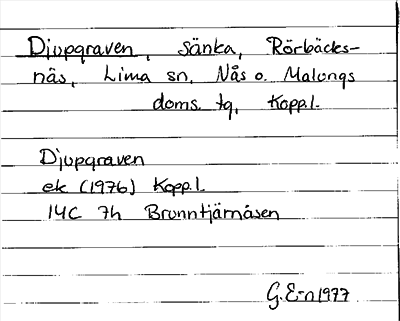 Djupgraven, sänka, Rörbäcks-
näs, Lima sn, Nås o. Malungs
doms. tg, Kopp.l.
Djupgraven
ek (1976) Kopp.l.
14C 7h Brunntjärnåsen
G. E-n 1977